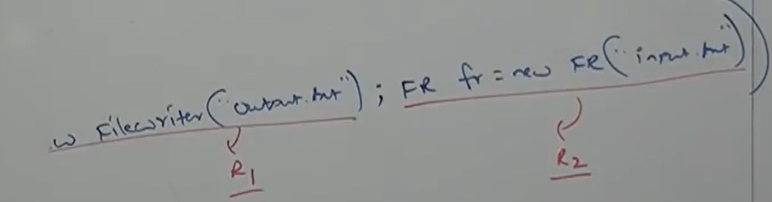 w Filewriter("output.txt"); FR fr = new FR("input.txt"))
R1 R2